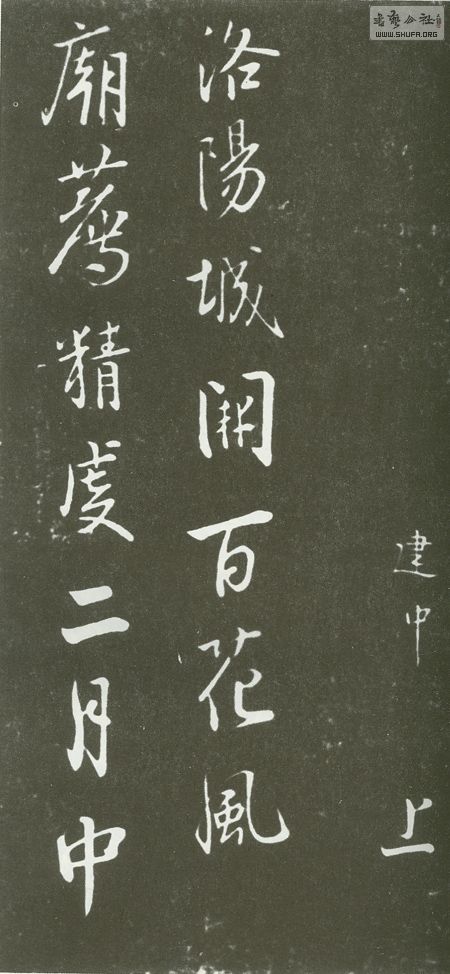 書藝公社
WWW.SHUFA.ORG
建中 上
洛陽城開百花風
廟薦精虔二月中